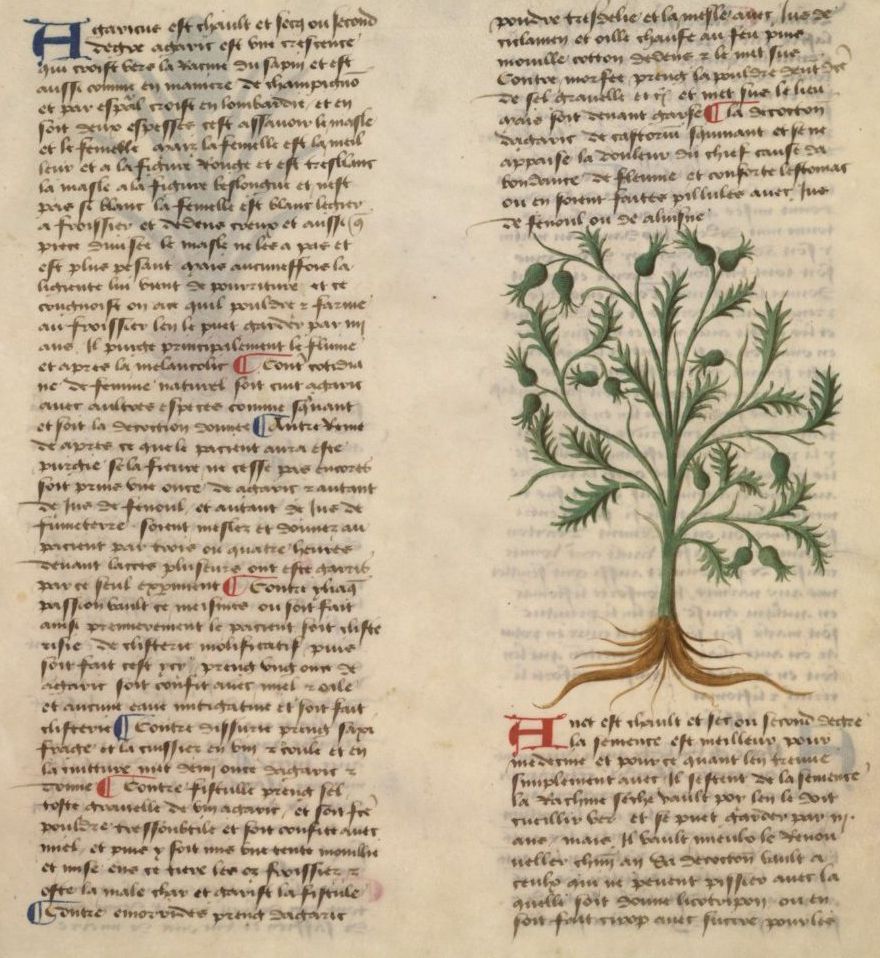 Agaricus est chault et secq ou second
degre agaric est une crescence
qui croist vers la racine du sapin et est
aussi comme en maniere de champigno
et par espal croist en lombardie, et en
soit deux especes cest assavoir le masle
et le femelle mais la femelle est la meil
leur et a la figure ronge et est tresblanc
la masle a la figure beslongue et nest
pas si blanc la femelle est blanc legier
a froissier et dedens creux et aussi
piece divisee le masle ne les a pas et
est plus pesant mais aucuneffois la
ligierete lui vient de pourriture et ce
congnoist on ace quil pouldre z farine
au froissier len le puet garder par iiij
ans Il purge principalement le flume
et apres la melancolie ¶ Cont cotidia
ne de flemme naturel soit cuit agaric
avec aultres especes comme squant
et soit la decoction donnee ¶ Autre Reme
de apres ce que le pacient aura este
purgie se la fievre ne cesse pas encores
soit prins une once de agaric z autant
de Jus de fenoul et autant de Jus de
fumeterre soient meslez et donnez au
pacient par trois ou quatre heures
devant lacces plusieurs ont este garis
par ce seul expiment ¶ Contre yliaq
passion vault ce meismes ou soit fait
ainsi premierement le pacient soit cliste
risie de clisterie molificatif puis
soit fait cest ycy preng ung once de
agaric soit confit avec miel z oile
et aucune eaue mitigative et soit fait
clisterie ¶ Contre dissurie preng saxi
frage et la cuissier en vin z coule et en
la cuitture met demi once dagaric z
donne ¶ Contre fistulle preng sel
toste gravelle de vin agaric et soit fce
pouldre tressoubtile et soit confit avec
miel et puis y soit mis une tente moullie
et mise ens ce tiere les os froissiez z
oste la male char et garist la fistule
¶ Contre emorroides preng dagaric
pouldre tresdelie et la mesle avec Jus de
ciclamen et oille chaufe au feu puis
mouille cotton dedens z le met sus
Contre morfee preng la pouldre
de sel gravelle et et met sus le lieu
mais soit devant garse ¶ la decocton
dagaric de castorium squinant et sene
appaise la douleur du chief cause da
bondance de fleume et conforte lestomac
ou en soient faites pillules avec Jus
de fenoul ou de aluisne
Anet est chault et sec ou second degre
la semence est meilleur pour
medecine et pource quant len treuve
simplement avec Il sestent de la semence
la Rachine seche vault por len le doit
cueillir ver et se puet garder par iij
ans mais Il vault mieulx le Renou
veller chm an Sa decocton vault a
ceulx qui ne peuent pissier avec la
quelle soit donne licotripon ou en
soit fait cirop avec succre pour les